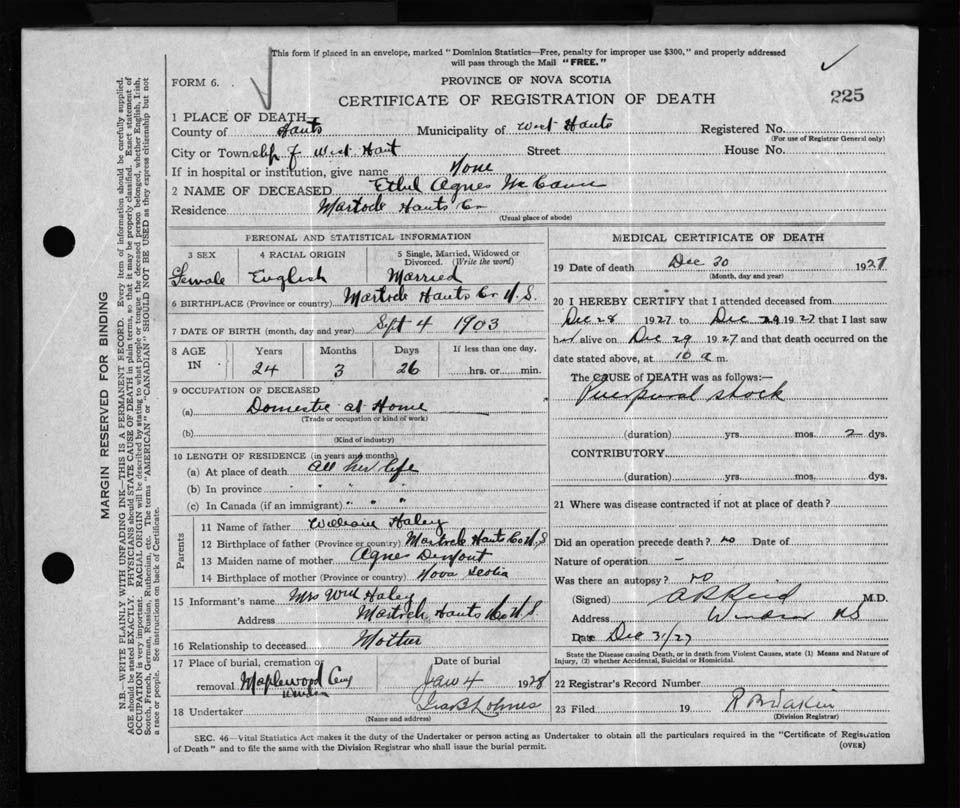 This form if placed in an envelope, marked "Dominion Statistics—Free, penalty for improper use $300," and properly addressed
will pass through the Mail "FREE."
FORM 6.
PROVINCE OF NOVA SCOTIA
CERTIFICATE OF REGISTRATION OF DEATH
225
1 PLACE OF DEATH—
County of Hants Municipality of West Hants Registered No.
(For use of Registrar General only)
City or Township of West Hant Street House No.
If in hospital or institution, give name None
2 NAME OF DECEASED Ethel Agnes McCann
Residence Martock Hants Co
(Usual place of abode)
PERSONAL AND STATISTICAL INFORMATION
3 SEX 4 RACIAL ORIGIN 5 Single, Married, Widowed or
Divorced. (Write the word)
Female English Married
6 BIRTHPLACE (Province or country) Martock Hants Co N.S.
7 DATE OF BIRTH (month, day and year) Sept 4 1903
8 AGE IN Years Months Days If less than one day,
24 3 26 hrs. or min.
9 OCCUPATION OF DECEASED
(a) Domestic at Home
(Trade or occupation or kind of work)
(b)
(Kind of industry)
10 LENGTH OF RESIDENCE (in years and months)
(a) At place of death all her life
(b) In province " " "
(c) In Canada (if an immigrant) " " "
Parents
11 Name of father William Haley
12 Birthplace of father (Province or country) Martock Hants Co N.S
13 Maiden name of mother Agnes
14 Birthplace of mother (Province or country) Nova Scotia
15 Informant's name Mrs Will Haley
Address Martock Hants Co N.S
16 Relationship to deceased Mother
17 Place of burial, cremation or Date of burial
removal Maplewood Cemy Jan 4 1928
Windsor
18 Undertaker
(Name and address)
MEDICAL CERTIFICATE OF DEATH
19 Date of death Dec 30 1927
(Month, day and year)
20 I HEREBY CERTIFY that I attended deceased from
Dec 28 1927 to Dec 29 1927 that I last saw
her alive on Dec 29 1927 and that death occurred on the
date stated above, at 10 a m.
The CAUSE of DEATH was as follows:—
Puerpural shock
(duration) yrs. mos. 2 dys.
CONTRIBUTORY
(duration) yrs. mos. dys.
21 Where was disease contracted if not at place of death?
Did an operation precede death? no Date of
Nature of operation —
Was there an autopsy? no
(Signed) M.D.
Address Windsor NS
Date Dec 31/27
State the Disease causing Death, or in death from Violent Causes, state (1) Means and Nature of
Injury, (2) whether Accidental, Suicidal or Homicidal.
22 Registrar's Record Number
23 Filed 19
(Division Registrar)
SEC. 46—Vital Statistics Act makes it the duty of the Undertaker or person acting as Undertaker to obtain all the particulars required in the "Certificate of Registration
of Death" and to file the same with the Division Registrar who shall issue the burial permit.
(OVER)
MARGIN RESERVED FOR BINDING
N.B.—WRITE PLAINLY WITH UNFADING INK—THIS IS A PERMANENT RECORD. Every item of information should be carefully supplied.
AGE should be stated EXACTLY. PHYSICIANS should STATE CAUSE OF DEATH in plain terms, so that it may be properly classified. Exact statement of
OCCUPATION is very important. RACIAL ORIGIN will be described by stating to what people or tongue the deceased person belonged, whether English, Irish,
Scotch, French, German, Russian, Ruthenian, etc. The terms "AMERICAN" or "CANADIAN" SHOULD NOT BE USED as they express citizenship but not
a race or people. See instructions on back of Certificate.